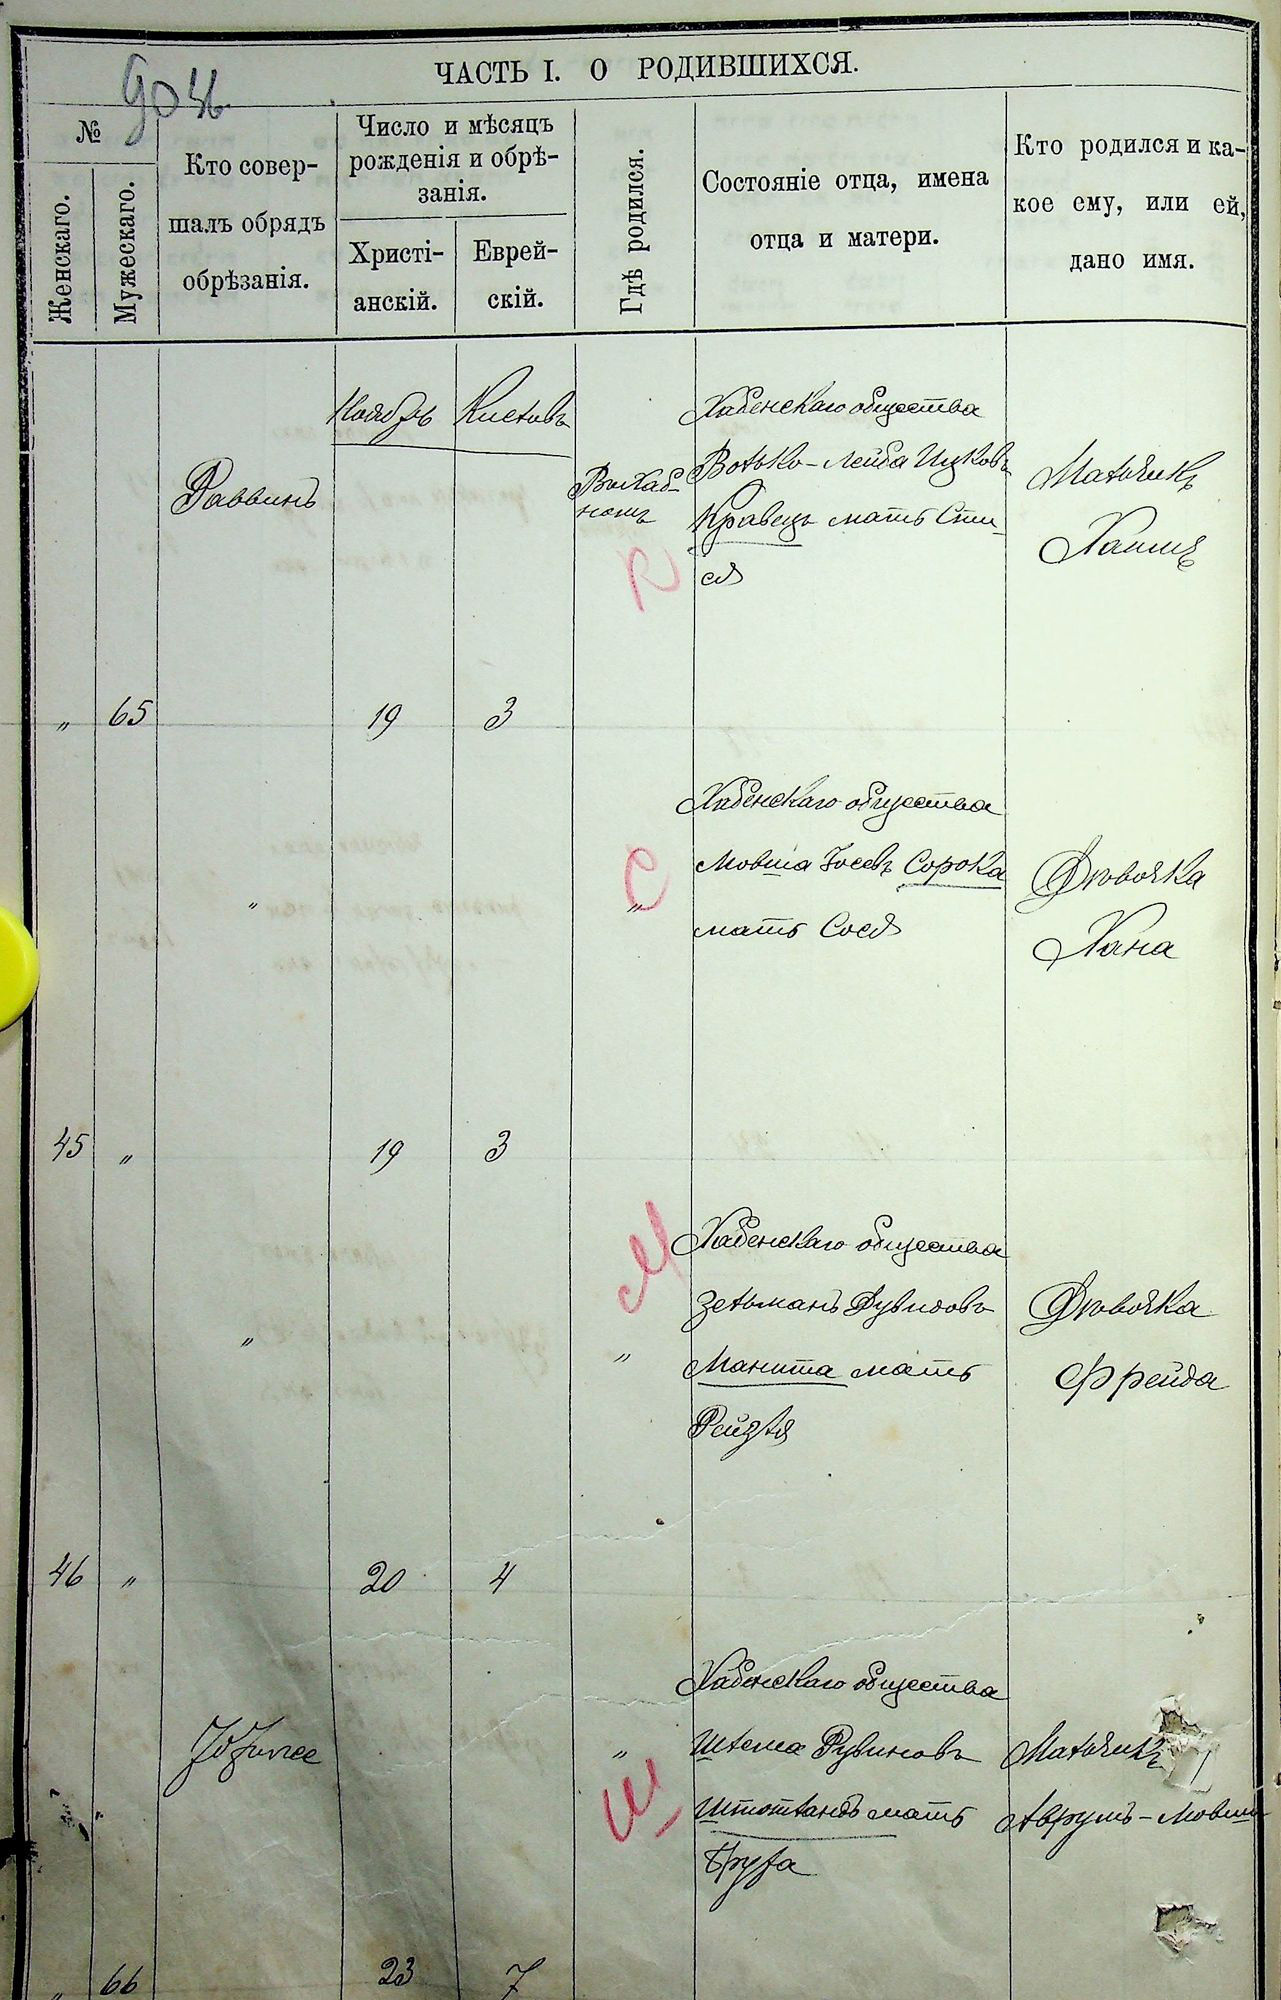 ЧАСТЬ I. О РОДИВШИХСЯ.
№
Женскаго.
Мужескаго.
Кто совер-
шалъ обрядъ
обрѣзанія.
Число и мѣсяцъ
рожденія и обрѣ-
занія.
Христі-
анскій.
Еврей-
скій.
Гдѣ родился.
Состояніе отца, имена
отца и матери.
Кто родился и ка-
кое ему, или ей,
дано имя.
Ноябрь Кислевъ
Хабенскаго общества
Раввинъ
Волько-Лейба Ицковъ
Кравецъ мать Сти
ся
К
Мальчикъ
Хаимъ
" 65 19 3
Хабенскаго общества
" " Мовша Іосевъ Сорока
мать Сося
С
Дѣвочка
Хана
45 " 19 3
Хабенскаго общества
Зельманъ Дувидовъ
" " Манита мать
Рейзля
М
Дѣвочка
Фрейда
46 " 20 4
Хабенскаго общества
" Шлема Рувиновъ
Штотландъ мать
Фрума
Ш
Мальчикъ
Аврумъ-Мовша
" 66 23 7